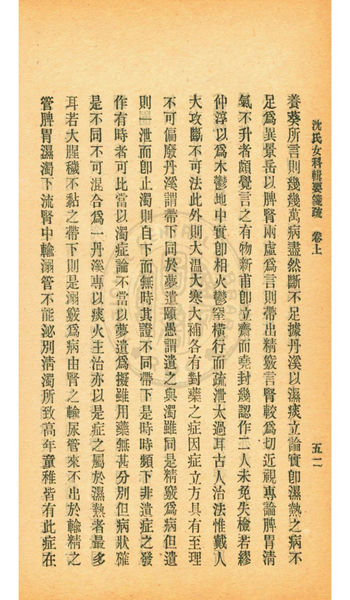 沈氏女科輯要箋疏 卷上 五二
養葵所言則幾幾萬病盡然斷不足據丹溪以濕痰立論實卽濕熱之病不
足爲異景岳以脾腎兩虛爲言則帶出精竅言腎較爲切近視專論脾胃淸
氣不升者頗覺言之有物新甫卽立齋而堯封幾認作二人未免失檢若繆
仲淳以爲木鬱地中實卽相火鬱窒橫行而疏泄太過耳古人治法惟戴人
大攻斷不可法此外則大溫大寒大補各有對藥之症因症立方具有至理
不可偏廢丹溪謂帶下同於夢遺頤愚謂遺之與濁雖同是精竅爲病但遺
則一泄而卽止濁則自下而無時其證不同帶下是時時頻下非遺症之發
作有時者可比當以濁症論不當以夢遺爲擬雖用藥無甚分別但病狀確
是不同不可混合爲一丹溪專以痰火主治亦以是症之屬於濕熱者最多
耳若大腥穢不黏之帶下則是溺竅爲病由腎之輸尿管來不出於輸精之
管脾胃濕濁下流腎中輸溺管不能泌別淸濁所致高年童稚皆有此症在